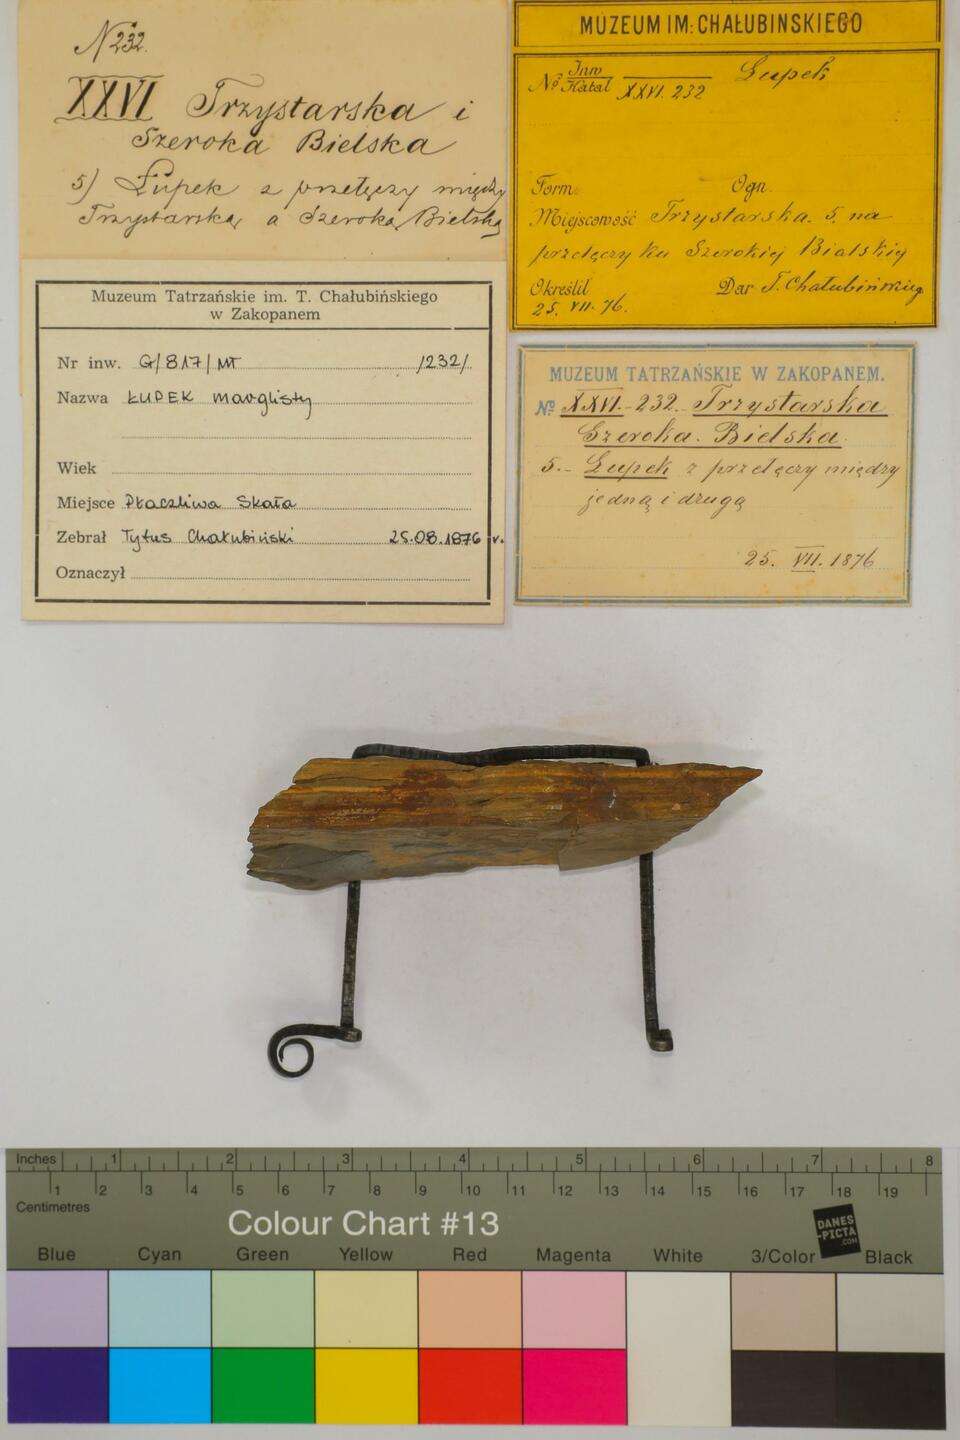 N 232.
XXVI Trzystarska i
Szeroka Bielska
5) Łupek z przełęczy między
Trzystarską a Szeroką Bielską
MUZEUM IM: CHAŁUBINSKIEGO
Nº Inw Katal XXVI. 232 Łupek
Form. Ogn.
Miejscowość Trzystarska. 5. na
przełęczy ku Szerokiej Bialskiej
Określił Dar T. Chałubińskieg
25. VII. 76.
Muzeum Tatrzańskie im. T. Chałubińskiego
w Zakopanem
Nr inw. G/817/MT /232/
Nazwa ŁUPEK marglisty
Wiek
Miejsce Płaczliwa Skała
Zebrał Tytus Chałubiński 25.08.1876 r.
Oznaczył
MUZEUM TATRZAŃSKIE W ZAKOPANEM.
Nº XXVI.-232. Trzystarska
Szeroka. Bielska.
5.- Łupek z przełęczy między
jedną i drugą
25. VII. 1876
Inches 1 2 3 4 5 6 7 8
1 2 3 4 5 6 7 8 9 10 11 12 13 14 15 16 17 18 19
Centimetres
Colour Chart #13
DANES
-PICTA
.COM
Blue Cyan Green Yellow Red Magenta White 3/Color Black